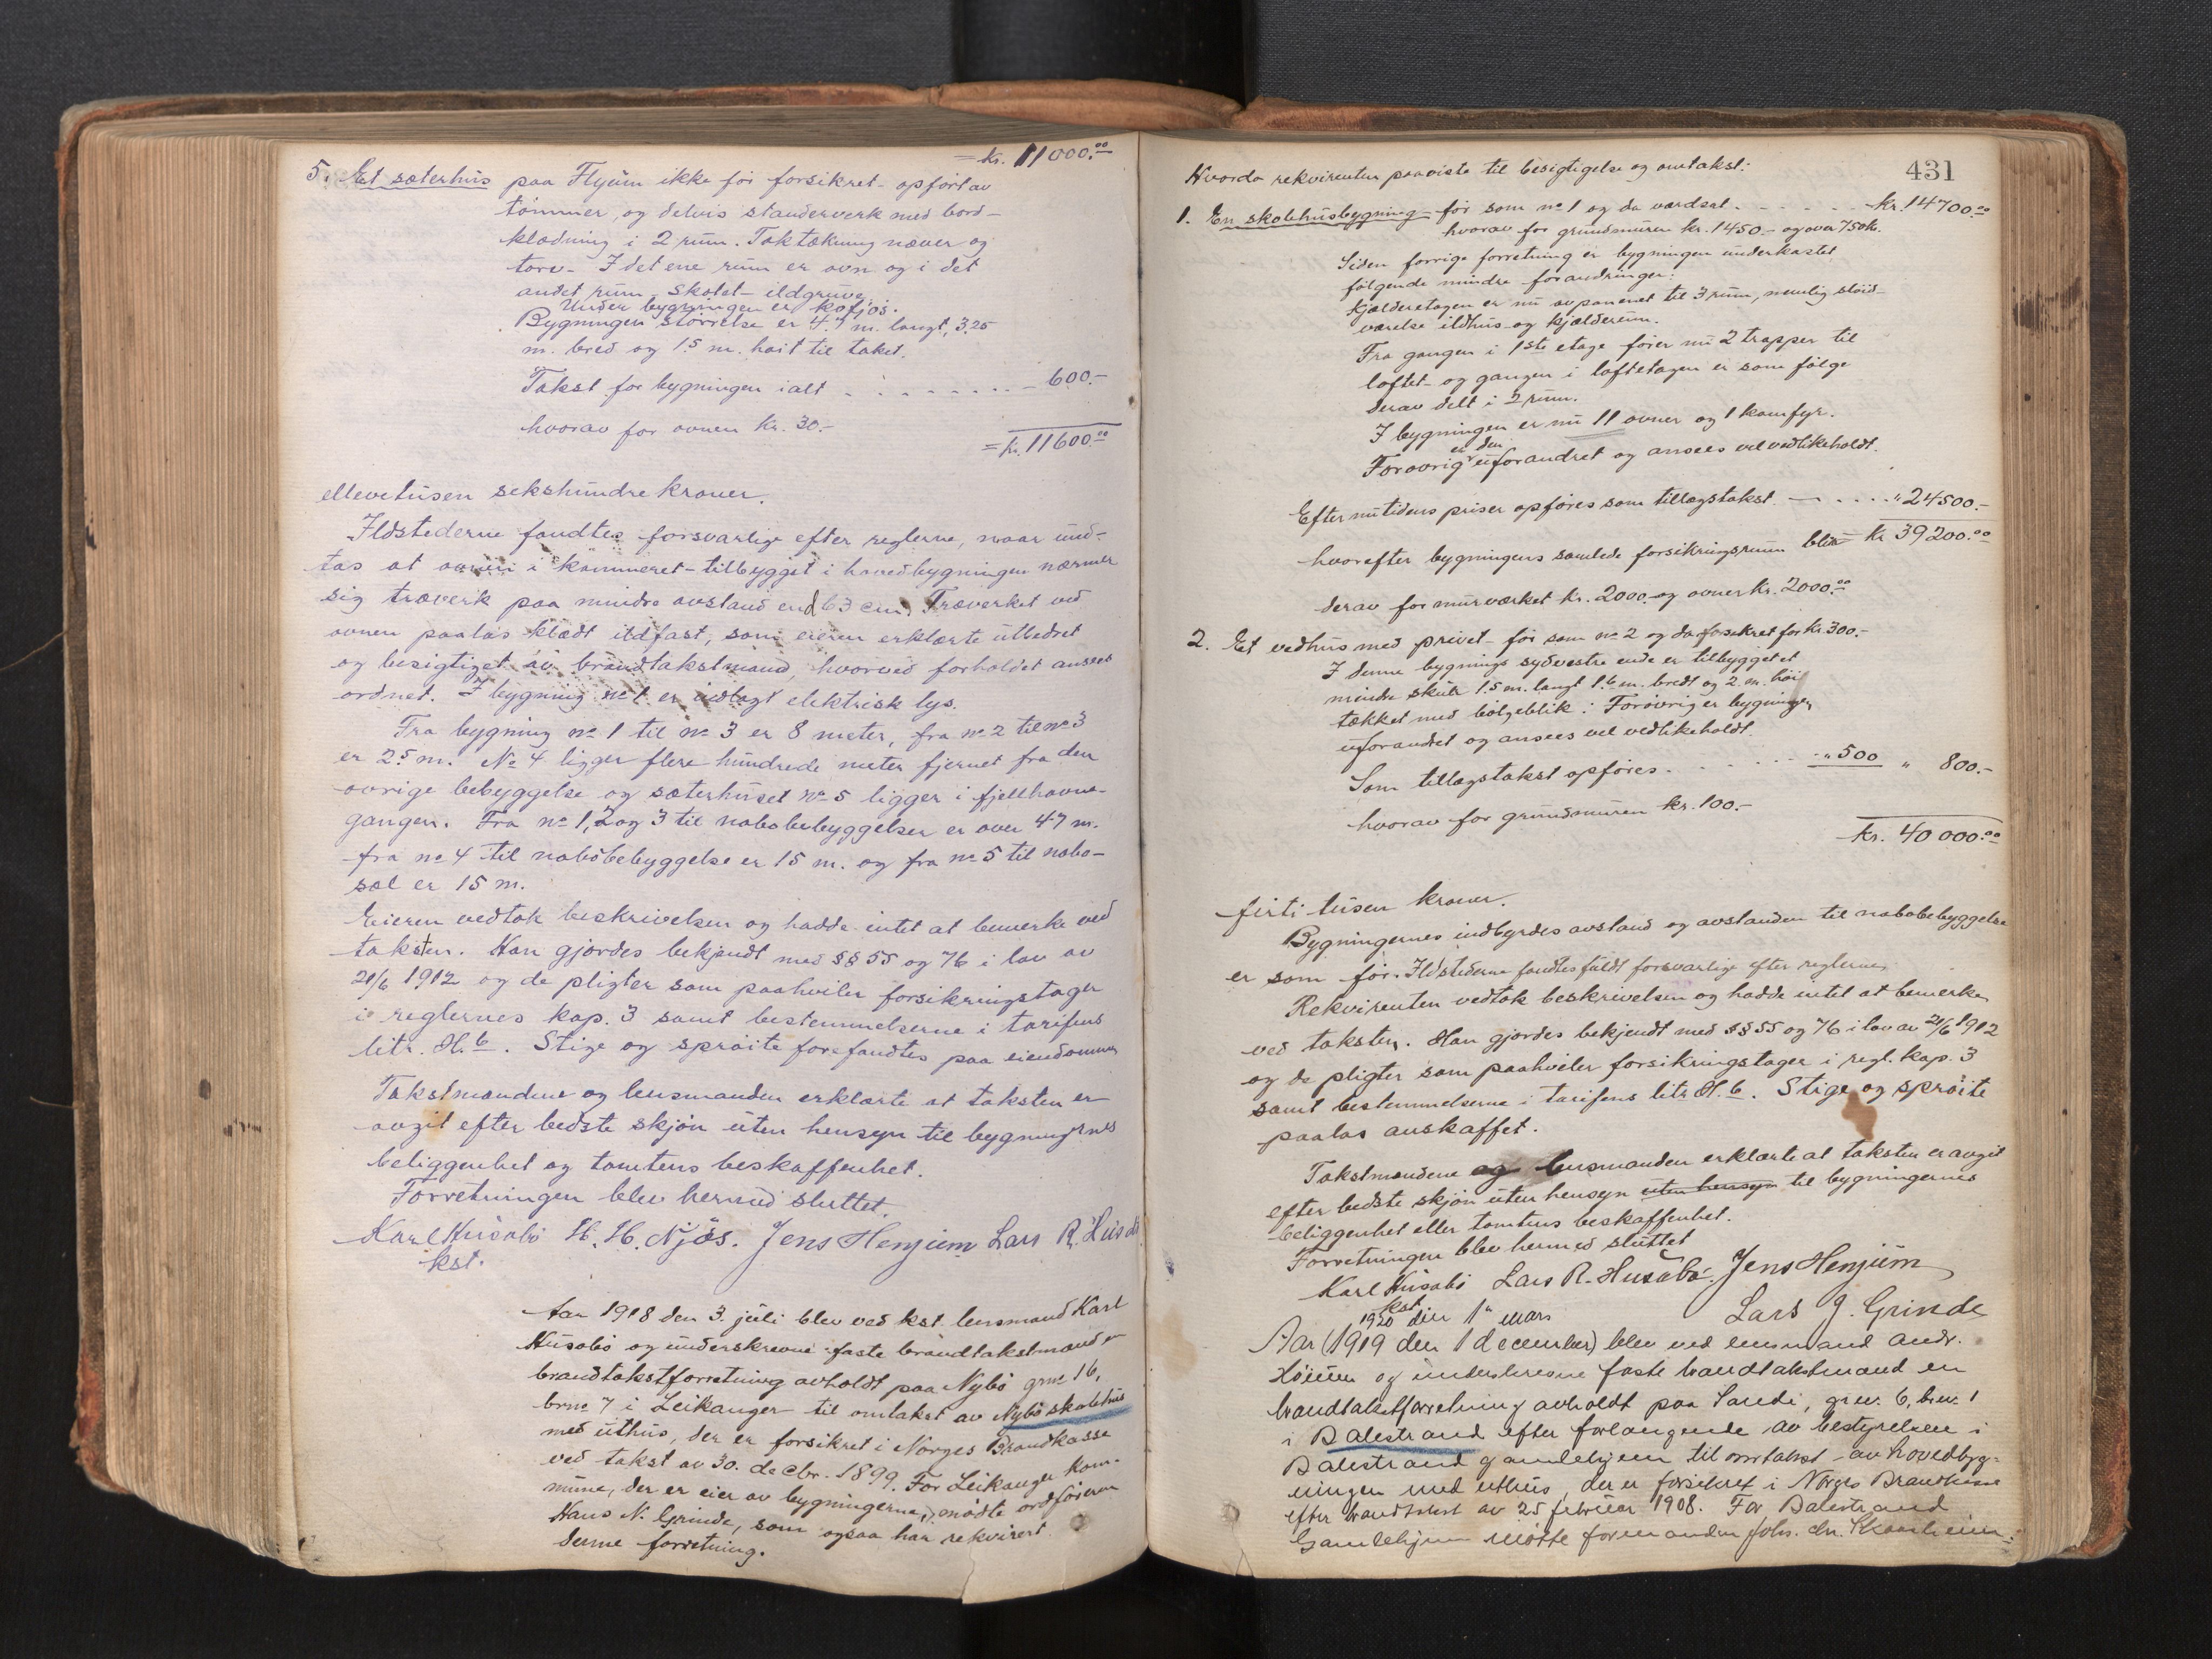 = kr. 11 000.00
5. Et sæterhus paa Flyum ikke för forsikret – opfört av
tömmer, og delvis standerverk med bord-
klædning i 2 rum. Taktækning næver og
torv – I det ene rum er ovn og i det
andet rum – skotet – ildgruve
Under bygningen er kofjös.
Bygningens störrelse er 4.7 m. langt, 3.25
m. bred og 1.5 m. höit til taket.
Takst for bygningen ialt . . . . . . . – 600.–
hvorav for ovnen kr. 30.–
= kr. 11600.00
ellevetusen sekshundre kroner.
Ildstederne fandtes forsvarlige efter reglerne, naar und-
tas at ovnen i kammeret – tilbygget i hovedbygningen nærmer
sig træverk paa mindre avstand end 63 cm. Træverket ved
ovnen paalas klædt ildfast, som eieren erklærte utbedret
og besigtiget av brandtakstmand, hvorved forholdet ansees
ordnet. I bygning no 1 er indlagt elektrisk lys.
Fra bygning no 1 til no 3 er 8 meter, fra no 2 til no 3
er 2.5 m. No 4 ligger flere hundrede meter fjernet fra den
övrige bebyggelse og sæterhuset no 5 ligger i fjellhavne-
gangen. Fra no 1, 2 og 3 til nabobebyggelsen er over 47 m.
fra no 4 til nabobebyggelse er 15 m. og fra no 5 til nabo-
sæl er 15 m.
Eieren vedtok beskrivelsen og hadde intet at bemerke ved
taksten. Han gjordes bekjendt med §§ 55 og 76 i lov av
21/6 1912 og de pligter som paahviler forsikringstager
i reglernes kap. 3 samt bestemmelserne i tarifens
litr. H. 6. Stige og spröite forefandtes paa eiendommen
Takstmændene og lensmanden erklærte at taksten er
avgit efter bedste skjön uten hensyn til bygningernes
beliggenhet og tomtens beskaffenhet.
Forretningen blev hermed sluttet.
Karl Husabö H. H. Njös. Jens Henjum Lars R. Husabö
kst.
Aar 1918 den 3. juli blev ved kst. lensmand Karl
Husabö og underskrevne faste brandtakstmænd en
brandtakstforretning avholdt paa Nybö grno 16,
brno 7 i Leikanger til omtakst av Nybö skolehus
med uthus, der er forsikret i Norges Brandkasse
ved takst av 30. decbr. 1899. For Leikanger kom-
mune, der er eier av bygningerne, mödte ordföreren
Hans N. Grinde, som ogsaa har rekvirert
denne forretning.
431
Hvorda rekvirenten paaviste til besigtigelse og omtakst:
1. En skolehusbygning – för som no 1 og da værdsat . . . . . . kr. 14700.00
hvorav for grundmuren kr. 1450.– og over 750 k.
Siden forrige forretning er bygningen underkastet
følgende mindre forandringer:
Kjælderetagen er nu avpanenet til 3 rum, nemlig slöid-
værelse ildhus og kjælderrum.
Fra gangen i 1ste etage förer nu 2 trapper til
loftet – og gangen i loftetagen er som fölge
derav delt i 2 rum.
I bygningen er nu 11 ovner og 1 komfyr.
er den
Forövrig uforandret og ansees vel vedlikeholdt.
Efter nutidens priser opföres som tillægstakst – . . . . " 24500.–
hvorefter bygningens samlede forsikringssum blir = kr 39200.00
derav for murverket kr. 2000. og ovner kr. 2000.00
2. Et vedhus med privet – för som no 2 og da forsikret for kr. 300.–
I denne bygnings sydvestre ende er tilbygget et
mindre skur 1.5 m. langt 1.6 m. bredt og 2 m. höi
tækket med bölgeblik. Forövrig er bygningen
uforandret og ansees vel vedlikeholdt.
Som tillægstakst opföres . . . . . . " 500 " 800.–
hvorav for grundmuren kr. 100.–
kr. 40 000.00
firti tusen kroner.
Bygningernes indbyrdes avstand og avstanden til nabobebyggelse
er som för. Ildstederne fandtes fuldt forsvarlige efter reglerne.
Rekvirenten vedtok beskrivelsen og hadde intet at bemerke
ved taksten. Han gjordes bekjendt med §§ 55 og 76 i lov av 21/6 1912
og de pligter som paahviler forsikringstager i regl. kap. 3
samt bestemmelserne i tarifens litr. H. 6. Stige og spröite
paalas anskaffet.
Takstmændene og lensmanden erklærte at taksten er avgit
efter bedste skjön uten hensyn uten hensyn til bygningernes
beliggenhet eller tomtens beskaffenhet.
Forretningen blev hermed sluttet
Karl Husabö Lars R. Husabö. Jens Henjum
kst. Lars J. Grinde
1920 den 1. mars
Aar (1919 den 1 december) blev ved lensmand Andr.
og underskrevne faste brandtakstmænd en
brandtakstforretning avholdt paa Sande, grnr. 6, brnr. 1
i Balestrand efter forlangende av bestyrelsen i
Balestrand gamlehjem til omtakst av hovedbyg-
ningen med uthus, der er forsikret i Norges Brandkasse
efter brandtakst av 25 februar 1908. For Balestrand
Gamlehjem mötte formanden Johs. Chr.